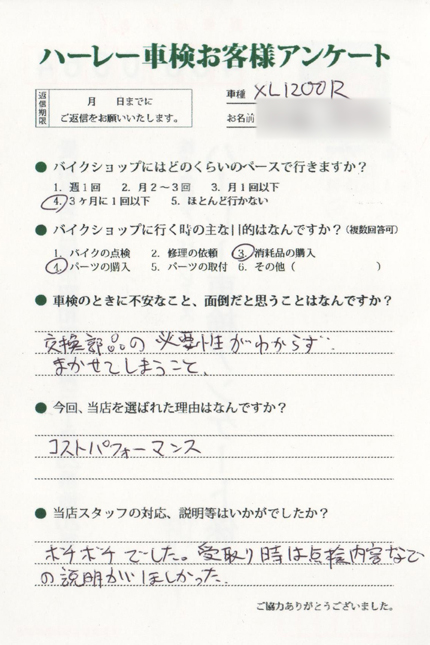 ハーレー車検お客様アンケート
返信期限
月　日までに
ご返信をお願いいたします。
車種 XL1200R
お名前
● バイクショップにはどのくらいのペースで行きますか？
1. 週1回　2. 月2～3回　3. 月1回以下
4. 3ヶ月に1回以下　5. ほとんど行かない
● バイクショップに行く時の主な目的はなんですか？（複数回答可）
1. バイクの点検　2. 修理の依頼　3. 消耗品の購入
4. パーツの購入　5. パーツの取付　6. その他（　　　　）
● 車検のときに不安なこと、面倒だと思うことはなんですか？
交換部品の必要性がわからず
まかせてしまうこと、
● 今回、当店を選ばれた理由はなんですか？
コストパフォーマンス
● 当店スタッフの対応、説明等はいかがでしたか？
ボチボチでした。受取り時は点検内容など
の説明がほしかった.
ご協力ありがとうございました。